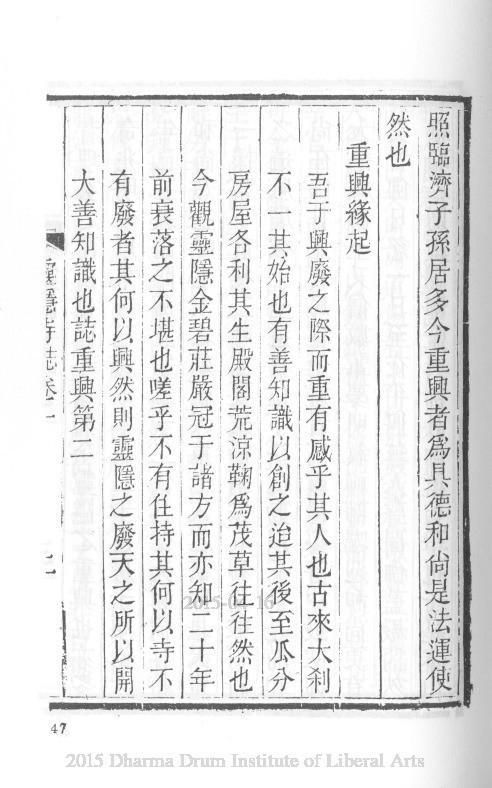 照臨濟子孫居多今重興者爲具德和尙是法運使
然也
重興緣起
吾于興廢之際而重有感乎其人也古來大刹
不一其始也有善知識以創之迨其後至瓜分
房屋各利其生殿閣荒涼鞠爲茂草往往然也
今觀靈隱金碧莊嚴冠于諸方而亦知二十年
前衰落之不堪也嗟乎不有住持其何以寺不
有廢者其何以興然則靈隱之廢天之所以開
大善知識也誌重興第二
靈隱寺誌卷一
47
2015 Dharma Drum Institute of Liberal Arts